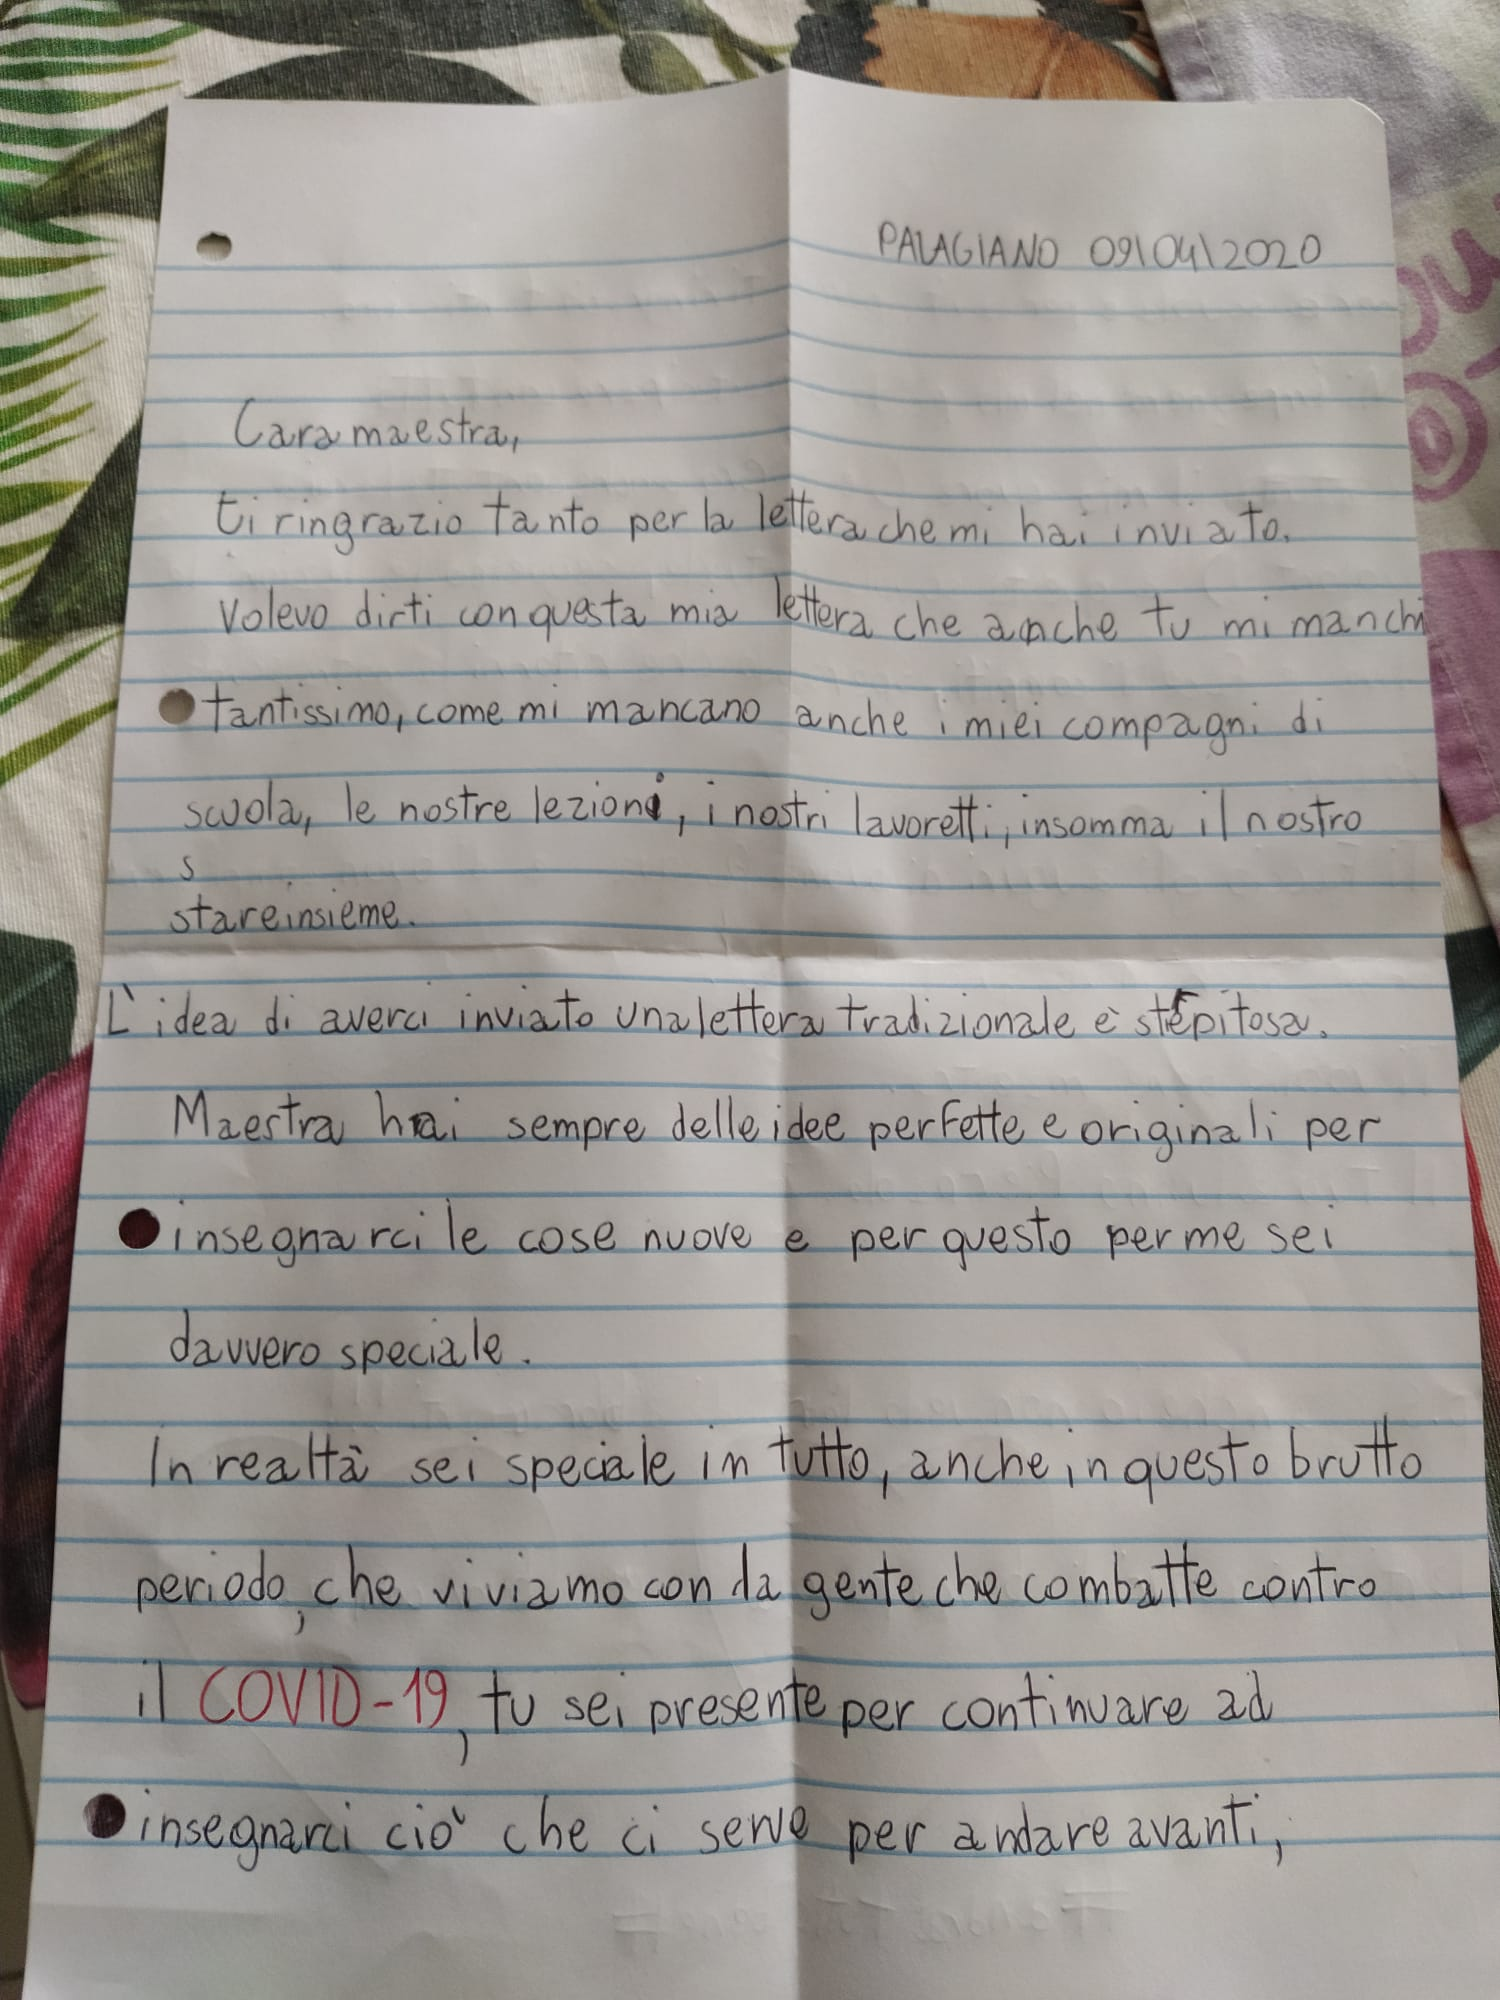 PALAGIANO 09\04\2020
Cara maestra,
ti ringrazio tanto per la lettera che mi hai inviato.
Volevo dirti con questa mia lettera che anche tu mi manchi
tantissimo, come mi mancano anche i miei compagni di
scuola, le nostre lezioni, i nostri lavoretti, insomma il nostro
s
stare insieme.
L'idea di averci inviato una lettera tradizionale è strepitosa.
Maestra hai sempre delle idee perfette e originali per
insegnarci le cose nuove e per questo per me sei
davvero speciale.
In realtà sei speciale in tutto, anche in questo brutto
periodo, che viviamo con la gente che combatte contro
il COVID-19, tu sei presente per continuare ad
insegnarci ciò che ci serve per andare avanti,